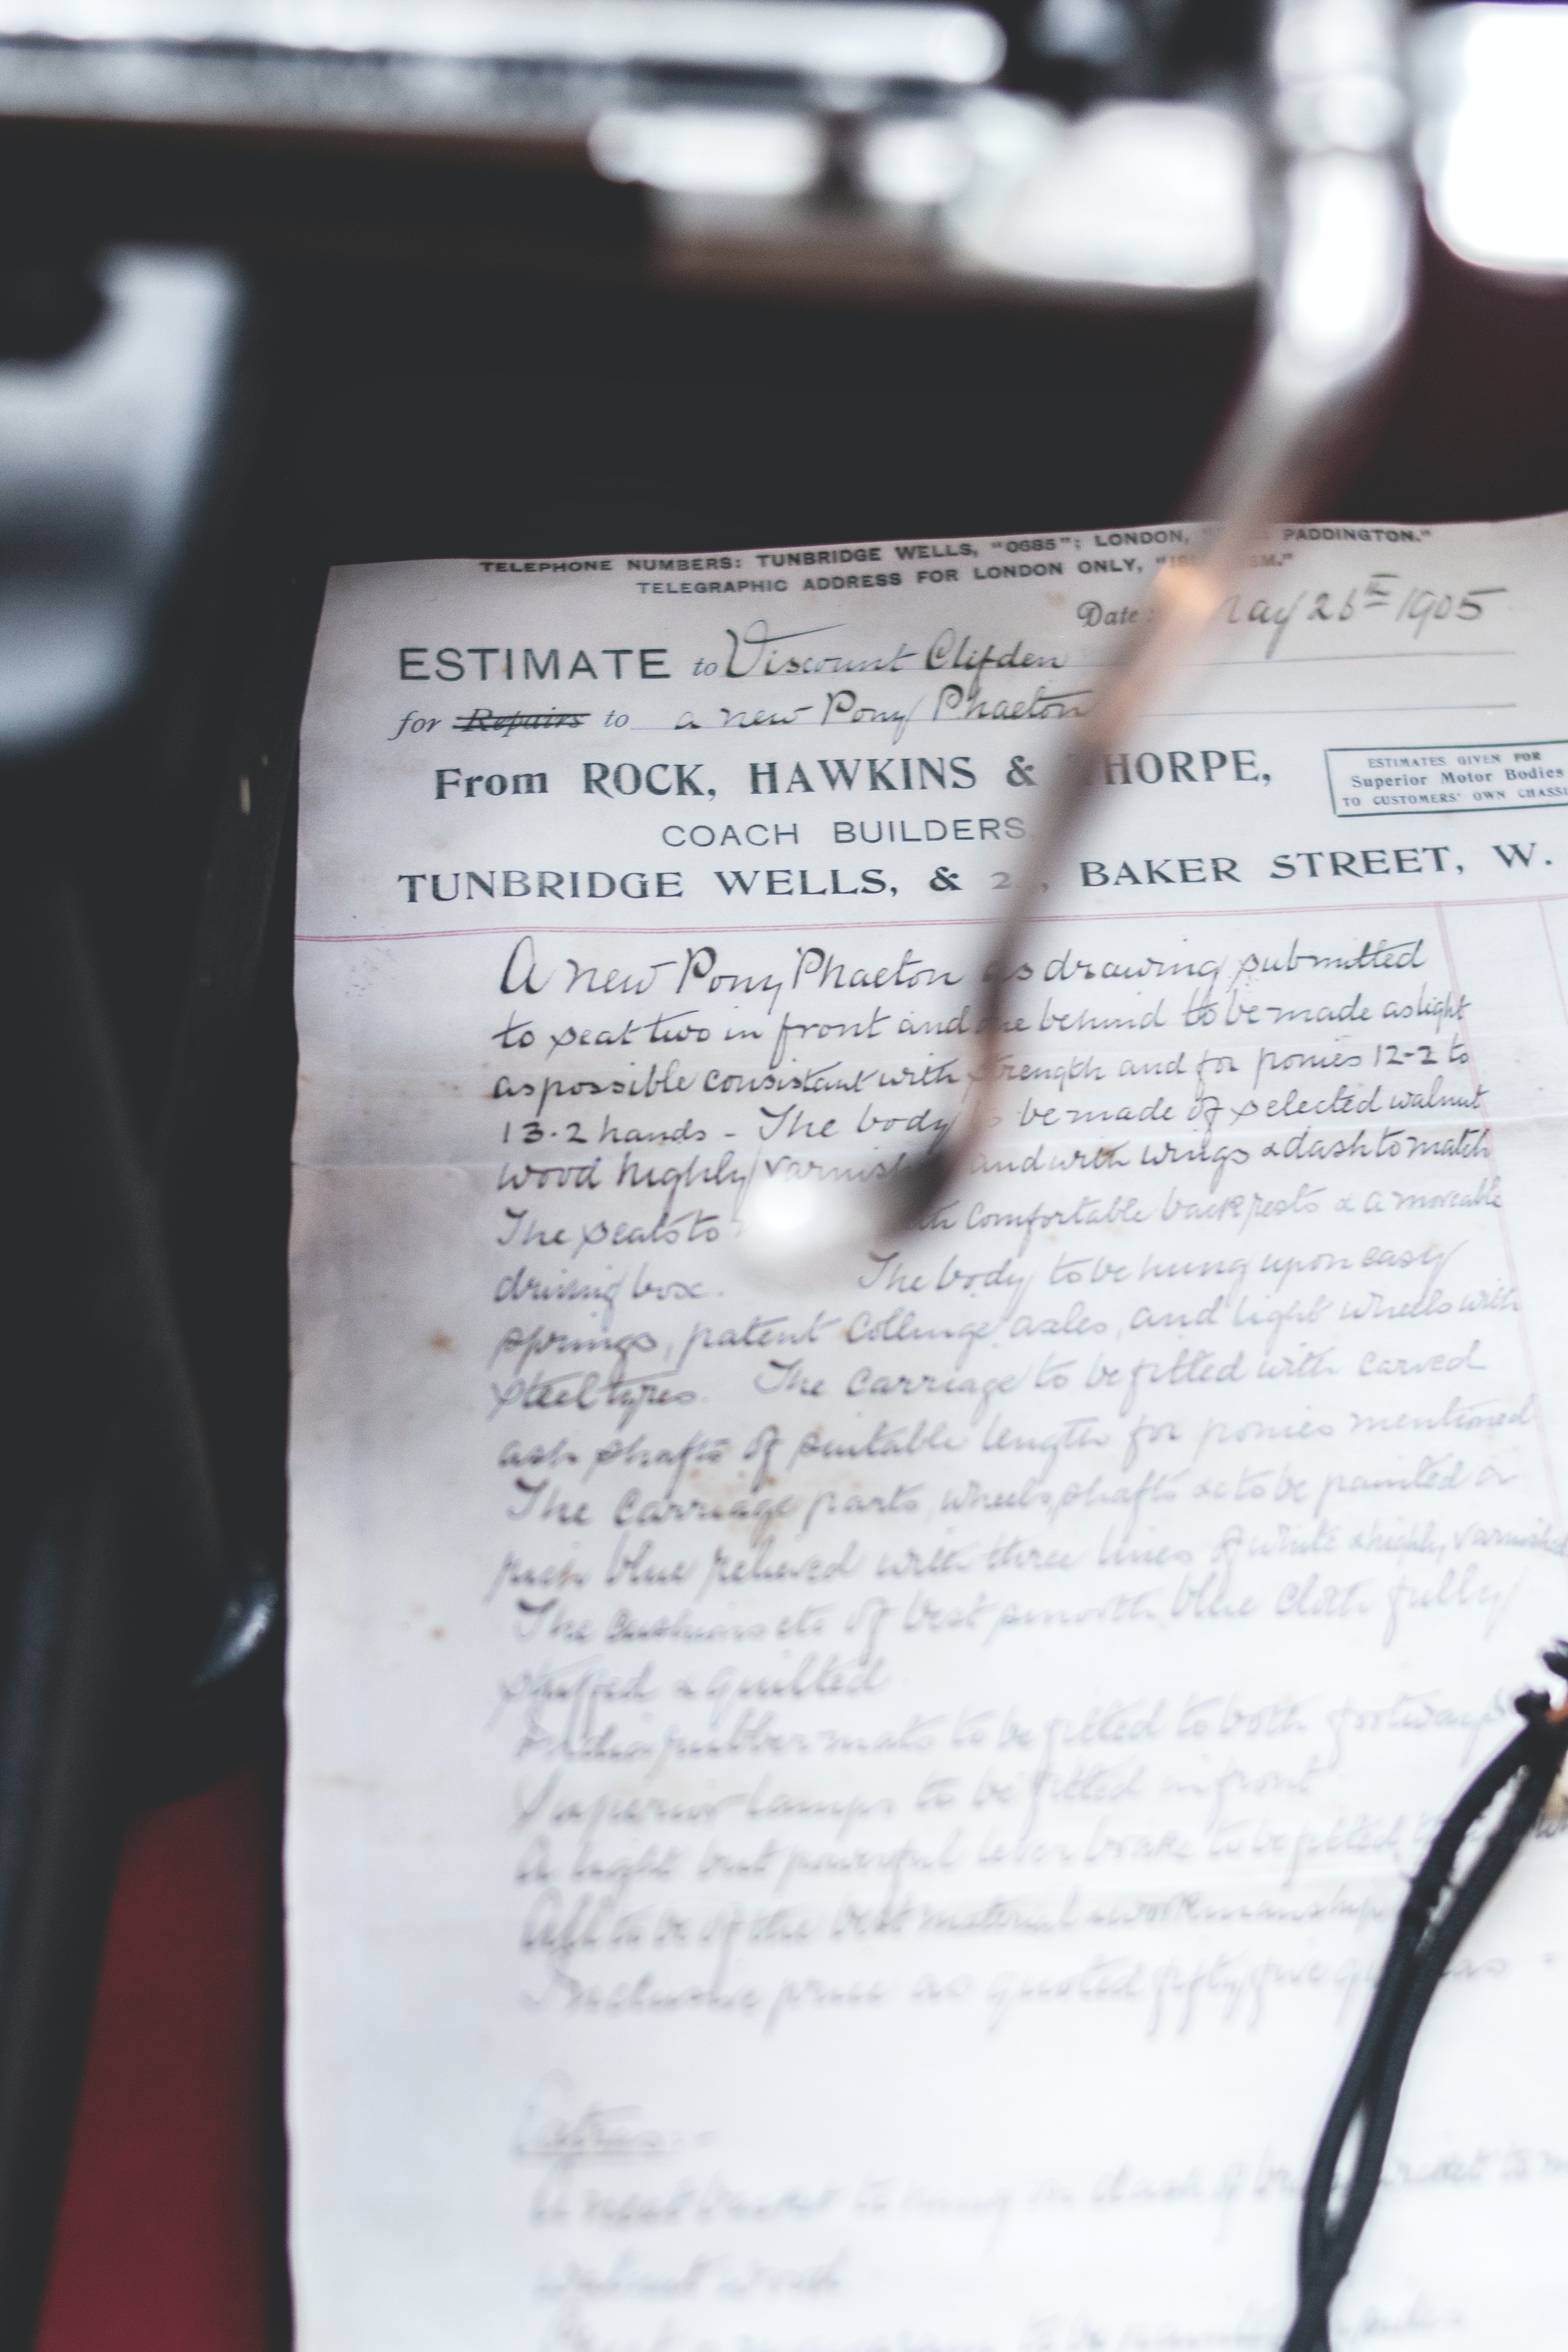 TELEPHONE NUMBERS: TUNBRIDGE WELLS, "0685"; LONDON, PADDINGTON."
TELEGRAPHIC ADDRESS FOR LONDON ONLY,
Date 1905
ESTIMATE to Viscount Clifden
for Repairs to a new Pony Phaeton
From ROCK, HAWKINS & THORPE,
ESTIMATES GIVEN FOR
Superior Motor Bodies
TO CUSTOMERS' OWN
COACH BUILDERS,
TUNBRIDGE WELLS, & BAKER STREET, W.
A new Pony Phaeton as drawing submitted
to seat two in front and one behind to be made as light
as possible consistant with strength and for ponies 12-2 to
13-2 hands - The body be made of selected walnut
wood highly and with wings & dash to match
The seats to comfortable back rests & a moveable
driving box. The body to be hung upon easy
springs, patent Collinge axles, and light wheels with
steel tyres. The Carriage to be fitted with carved
ash shafts of suitable length for ponies mentioned
The Carriage parts, wheels, shafts &c to be painted a
blue relieved with three lines of white & highly varnished
The cushions etc of best smooth blue cloth fully
stuffed & quilted
rubber mats to be fitted to both footways
Superior lamps to be fitted in front
A light but powerful lever brake to be fitted
All to be of the best material & workmanship
Inclusive price as quoted fifty five
Extras:-
A neat basket to hang on dash
walnut wood